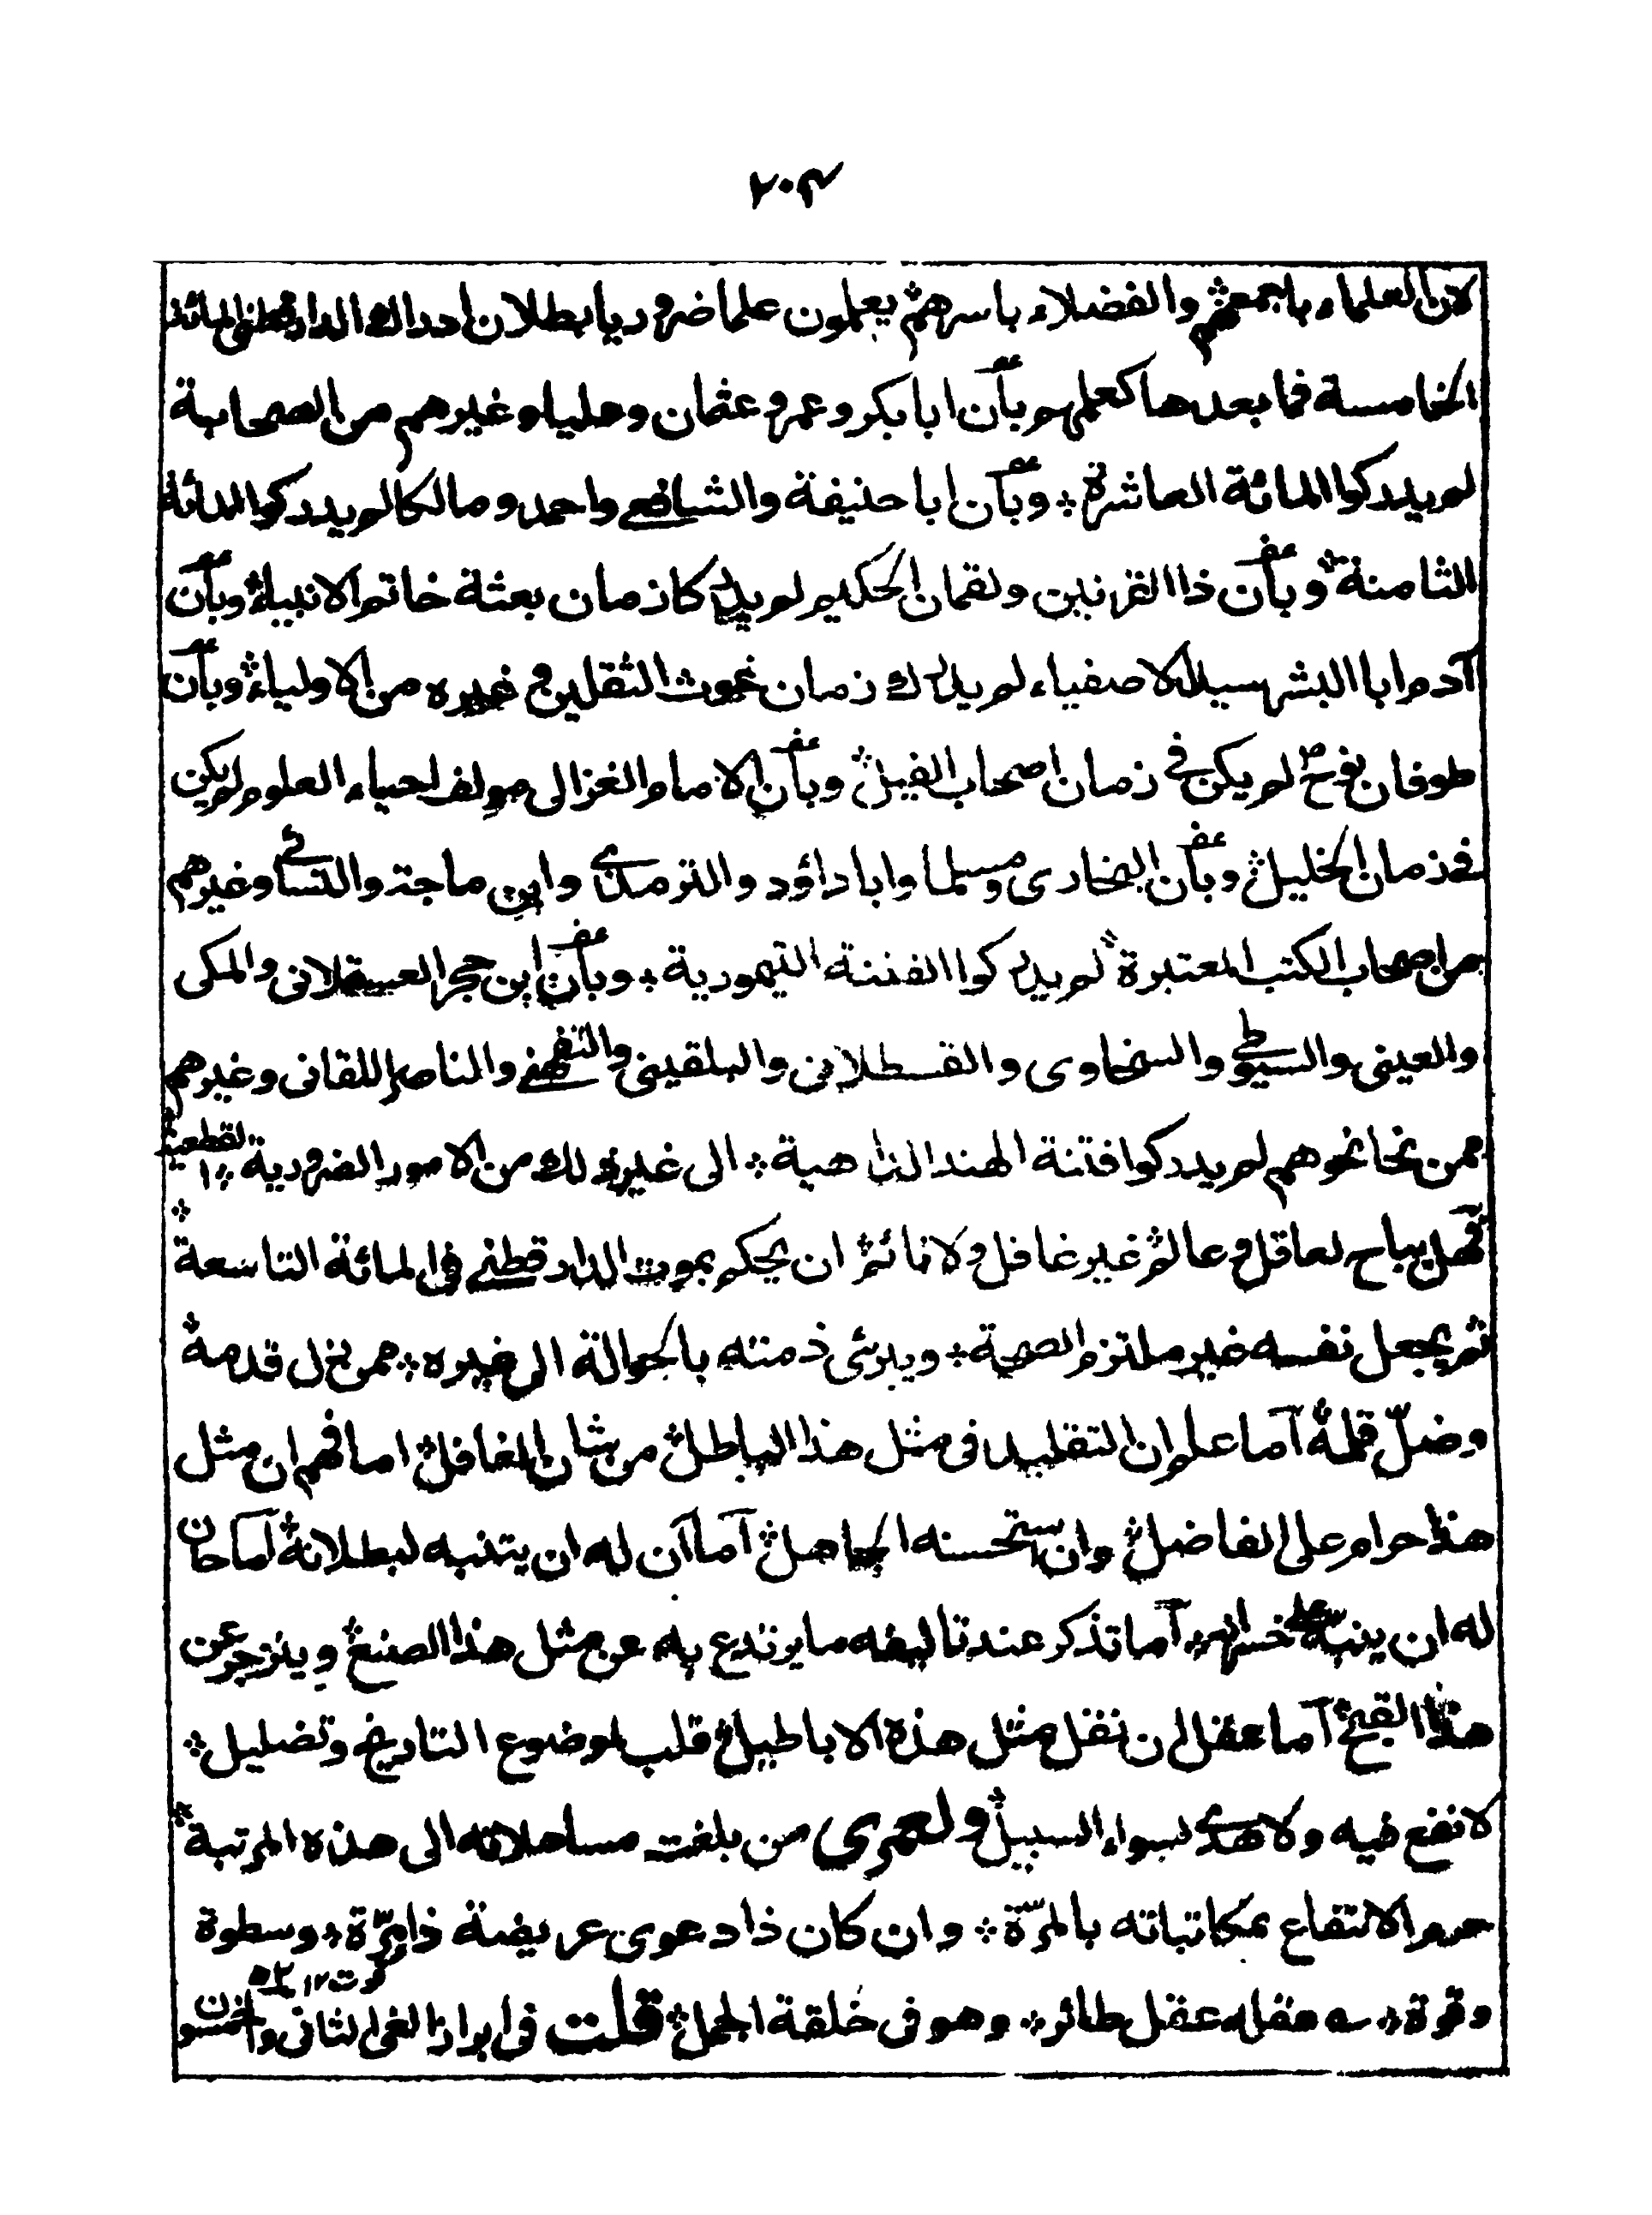 ٢٠٤
لان العلماء باجمعهم والفضلاء باسرهم يعلمون علما ضروريا بطلان ادراك الدارقطنى المائة
الخامسة فما بعدها كعلمهم بأن ابا بكر وعمر وعثمان وعليا وغيرهم من الصحابة
لم يدركوا المائة العاشرة ۞ وبأن ابا حنيفة والشافعي واحمد ومالكا لم يدركوا المائة
الثامنة ۞ وبأن ذا القرنين ولقمان الحكيم لم يدركا زمان بعثة خاتم الانبياء ۞ وبأن
آدم ابا البشر سيد الاصفياء لم يدرك زمان غوث الثقلين وغيره من الاولياء ۞ وبأن
طوفان نوح لم يكن في زمان اصحاب الفيل ۞ وبأن الامام الغزالى مولف احياء العلوم لم يكن
في زمان الخليل ۞ وبأن البخارى ومسلما وابا داؤد والترمذي وابن ماجة والنسائي وغيرهم
من اصحاب الكتب المعتبرة ۞ لم يدركوا الفتنة التيمورية ۞ وبأن ابن حجر العسقلانى والمكى
والعينى والسيوطي والسخاوى والقسطلانى والبلقينى والتفهني والناصر اللقانى وغيرهم
ممن نحا نحوهم لم يدركوا فتنة الهند الذاهبة ۞ الى غير ذلك من الامور الضرورية ۞ القطعية ۞
فهل يباح لعاقل وعالم ۞ غير غافل ولا نائم ۞ ان يحكم بموت الدارقطني في المائة التاسعة
ثم يجعل نفسه غير ملتزم الصحة ۞ ويبرئ ذمته بالحوالة الى غيره ۞ ممن زل قدمه ۞
وضلّ قلمه ۞ آما علم ان التقليد فى مثل هذا الباطل ۞ من شان المغافل ۞ اما فهم ان مثل
هذا حرام على الفاضل ۞ وان يستحسنه الجاهل ۞ آما آن له ان يتنبه لبطلانه ۞ آما حان
له ان ينبّه على خسرانه ۞ آما تذكر عند تاليفه ما يرتدع به عن مثل هذا الصنع ۞ وينزجر عن
هذا القبح ۞ آما عقل ان نقل مثل هذه الاباطيل ۞ قلب لموضوع التاريخ وتضليل ۞
لا نفع فيه ولا هدي لسواء السبيل ۞ ولعمرى من بلغت مساهلاته الى هذه المرتبة ۞
حرم الانتفاع بمكاتباته بالمرّة ۞ وان كان ذا دعوى عريضة ذا مِرّة ۞ وسطوة
وقوة ۞ عقله عقل طائر ۞ وهو فى خلقة الجمل ۞ قلت فى ابراز الغى الثانى والخمسون
قوت ١٢